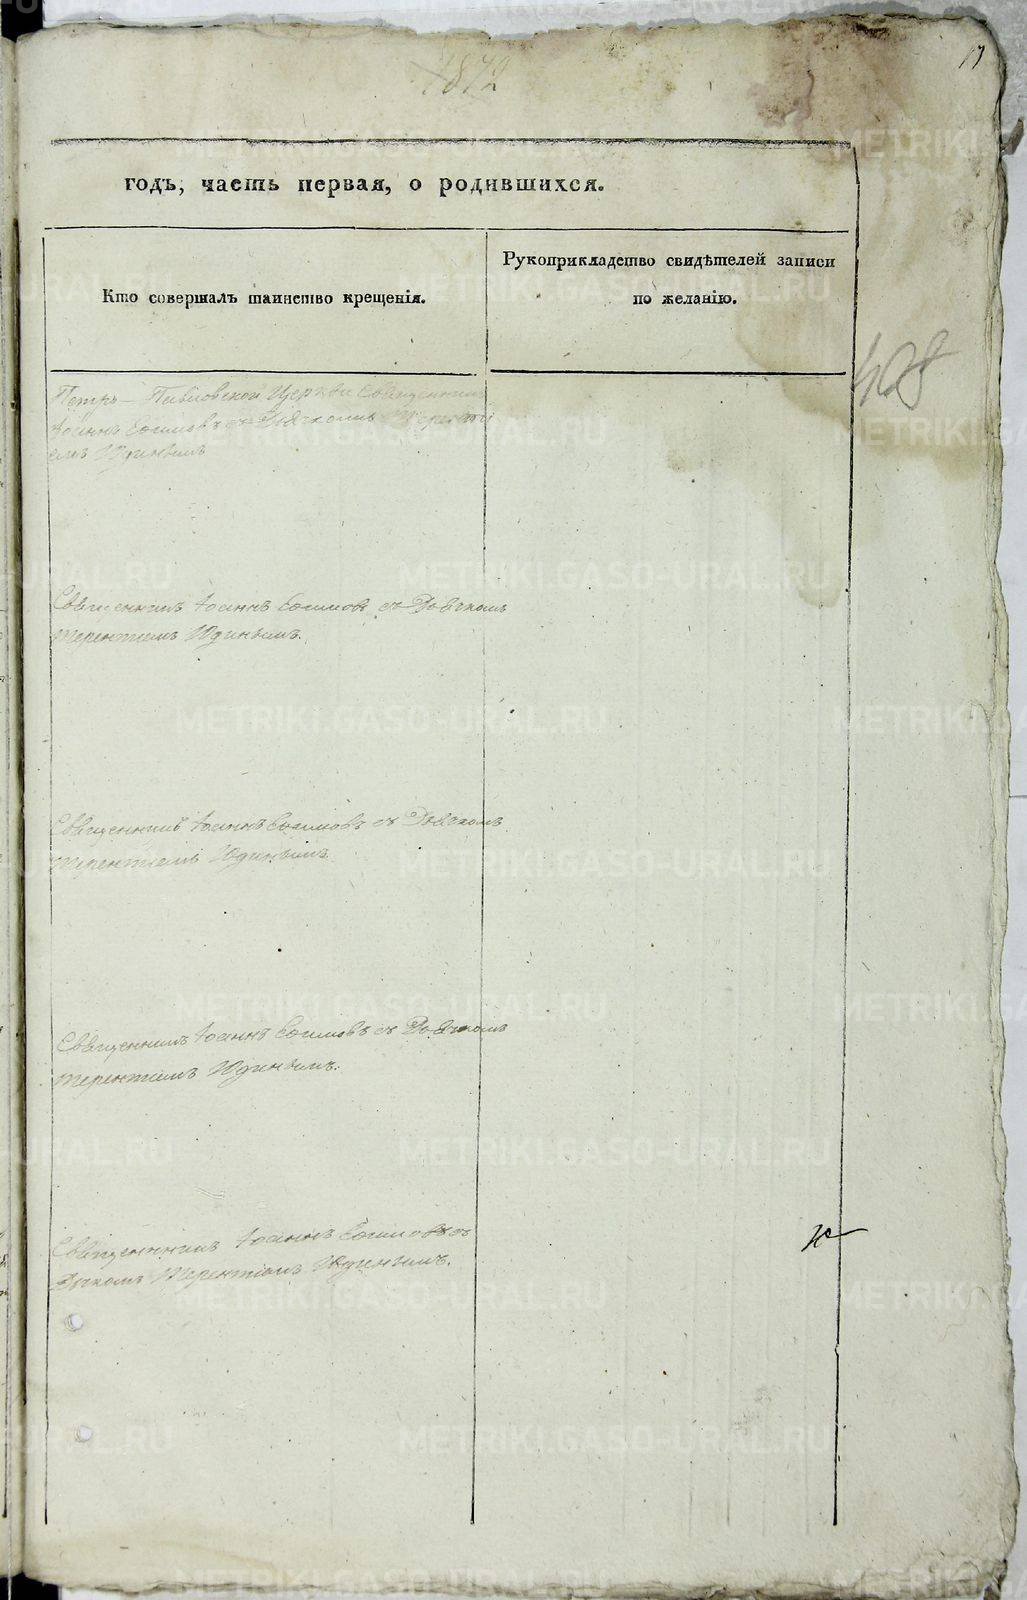 17
1872
годъ, часть первая, о родившихся.
Кто совершалъ таинство крещенія.
Рукоприкладство свидѣтелей записи
по желанію.
408
Петро-Павловской Церкви Священникъ
Іоаннъ съ Дьячкомъ Теренті
емъ Юдинымъ
Священникъ Іоаннъ съ Дьячкомъ
Терентіемъ Юдинымъ.
Священникъ Іоаннъ съ Дьячкомъ
Терентіемъ Юдинымъ.
Священникъ Іоаннъ съ Дьячкомъ
Терентіемъ Юдинымъ.
Священникъ Іоаннъ съ
Дьячкомъ Терентіемъ Юдинымъ.
METRIKI.GASO-URAL.RU